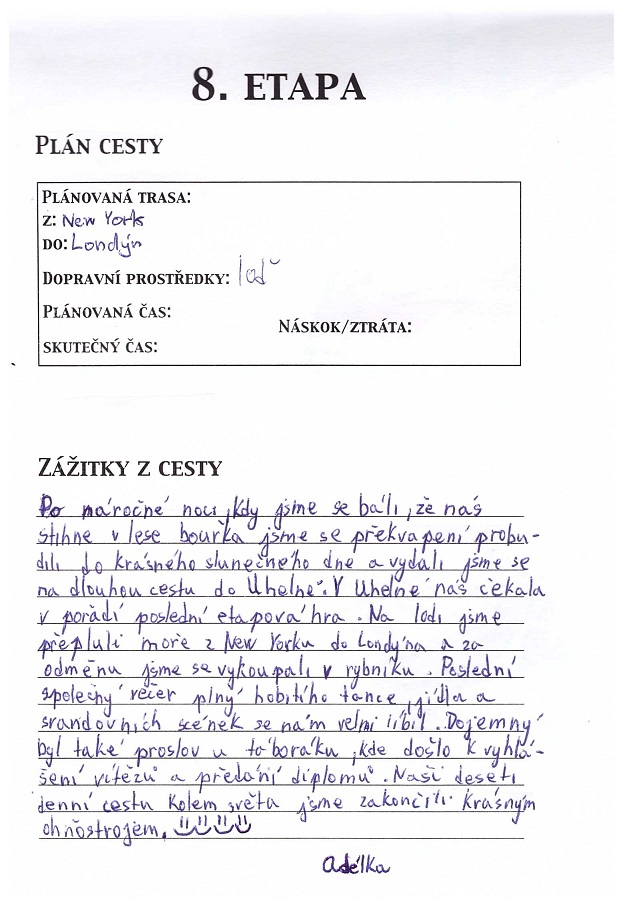 8. ETAPA
PLÁN CESTY
PLÁNOVANÁ TRASA:
Z: New York
DO: Londýn
DOPRAVNÍ PROSTŘEDKY: loď
PLÁNOVANÁ ČAS:
NÁSKOK/ZTRÁTA:
SKUTEČNÝ ČAS:
ZÁŽITKY Z CESTY
Po náročné noci, kdy jsme se báli, že nás
stihne v lese bouřka jsme se překvapení probu-
dili do krásného slunečného dne a vydali jsme se
na dlouhou cestu do Uhelné. V Uhelné nás čekala
v pořadí poslední etapová hra. Na lodi jsme
přepluli moře z New Yorku do Londýna a za
odměnu jsme se vykoupali v rybníku. Poslední
společný večer plný hobitího tance, jídla a
srandovních scének se nám velmi líbil. Dojemný
byl také proslov u táboráku, kde došlo k vyhlá-
šení vítězů a předání diplomů. Naši deseti
denní cestu kolem světa jsme zakončili krásným
ohňostrojem.
Adélka